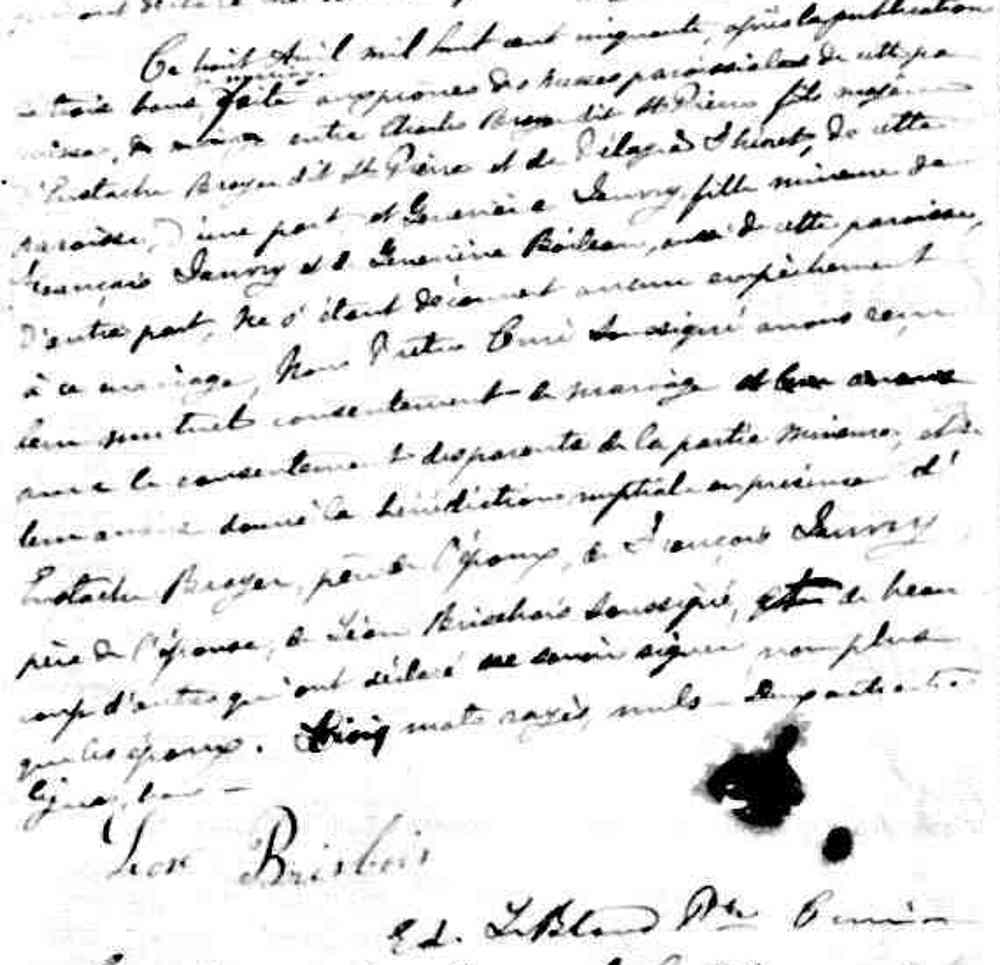 Ce huit Avril mil huit cent cinquante, après la publication
de mariage
de trois bans, faite aux prônes des messes paroissiales de cette pa
roisse, entre Charles Broyer dit St Pierre fils majeur
d'Eustache Broyer dit St Pierre et de Pélagie Thinet, de cette
paroisse, d'une part, et Geneviève Dauvry, fille mineure de
François Dauvry et de Geneviève Boileau, aussi de cette paroisse,
d'autre part, ne s'étant découvert aucun empêchement
à ce mariage, Nous Prêtre Curé soussigné avons reçu
leur mutuel consentement de mariage
avec le consentement des parents de la partie mineure, et
leur avons donné la bénédiction nuptiale en présence d'
Eustache Broyer, père de l'époux, de François Dauvry
père de l'épouse, de Léon Brisebois soussigné, et de beau
coup d'autres qui ont déclaré ne savoir signer non plus
que les époux. Trois mots rayés nuls - Deux entre
lignes, bons -
Léon Brisbois
Ed. LeBlond Ptre Curé